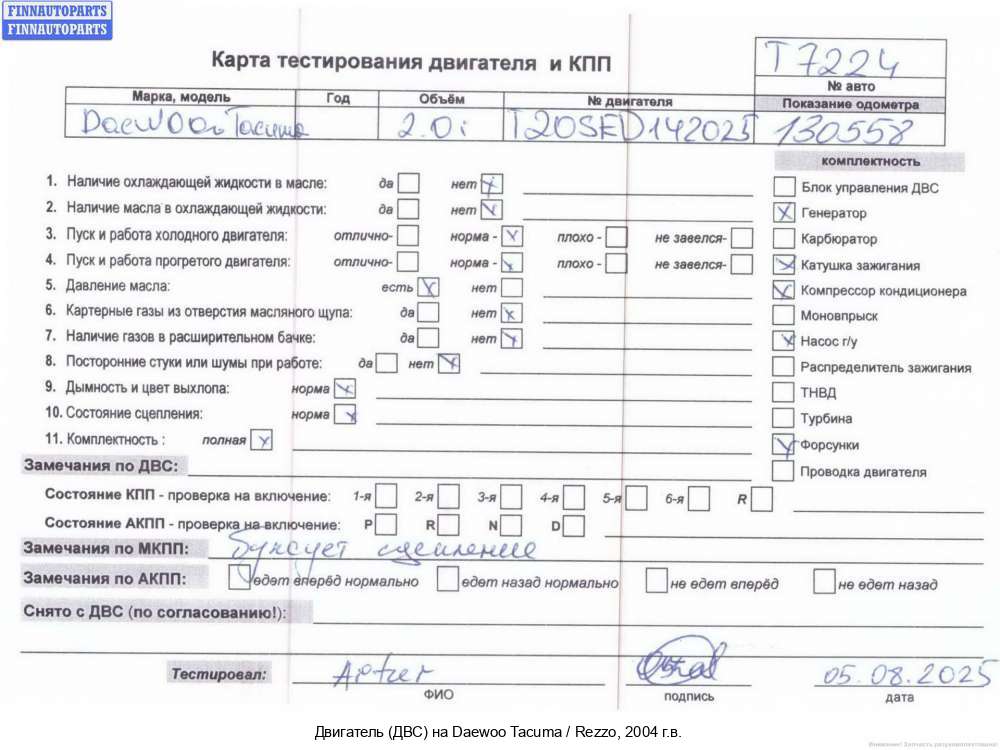 FINNAUTOPARTS
FINNAUTOPARTS
Карта тестирования двигателя и КПП
T7224
№ авто
Марка, модель Год Объём № двигателя Показание одометра
Daewoo Tacuma 2.0i T20SED142025 130558
комплектность
1. Наличие охлаждающей жидкости в масле: да нет
Блок управления ДВС
2. Наличие масла в охлаждающей жидкости: да нет
Генератор
3. Пуск и работа холодного двигателя: отлично- норма - плохо - не завелся-
Карбюратор
4. Пуск и работа прогретого двигателя: отлично- норма - плохо - не завелся-
Катушка зажигания
5. Давление масла: есть нет
Компрессор кондиционера
6. Картерные газы из отверстия масляного щупа: да нет
Моновпрыск
7. Наличие газов в расширительном бачке: да нет
Насос г/у
8. Посторонние стуки или шумы при работе: да нет
Распределитель зажигания
9. Дымность и цвет выхлопа: норма
ТНВД
10. Состояние сцепления: норма
Турбина
11. Комплектность : полная
Форсунки
Замечания по ДВС:
Проводка двигателя
Состояние КПП - проверка на включение: 1-я 2-я 3-я 4-я 5-я 6-я R
Состояние АКПП - проверка на включение: P R N D
Замечания по МКПП: Буксует сцепление
Замечания по АКПП: едет вперёд нормально едет назад нормально не едет вперёд не едет назад
Снято с ДВС (по согласованию!):
Тестировал: Artur 05.08.2025
ФИО подпись дата
Двигатель (ДВС) на Daewoo Tacuma / Rezzo, 2004 г.в.
Внимание! Запчасть разукомплектована!